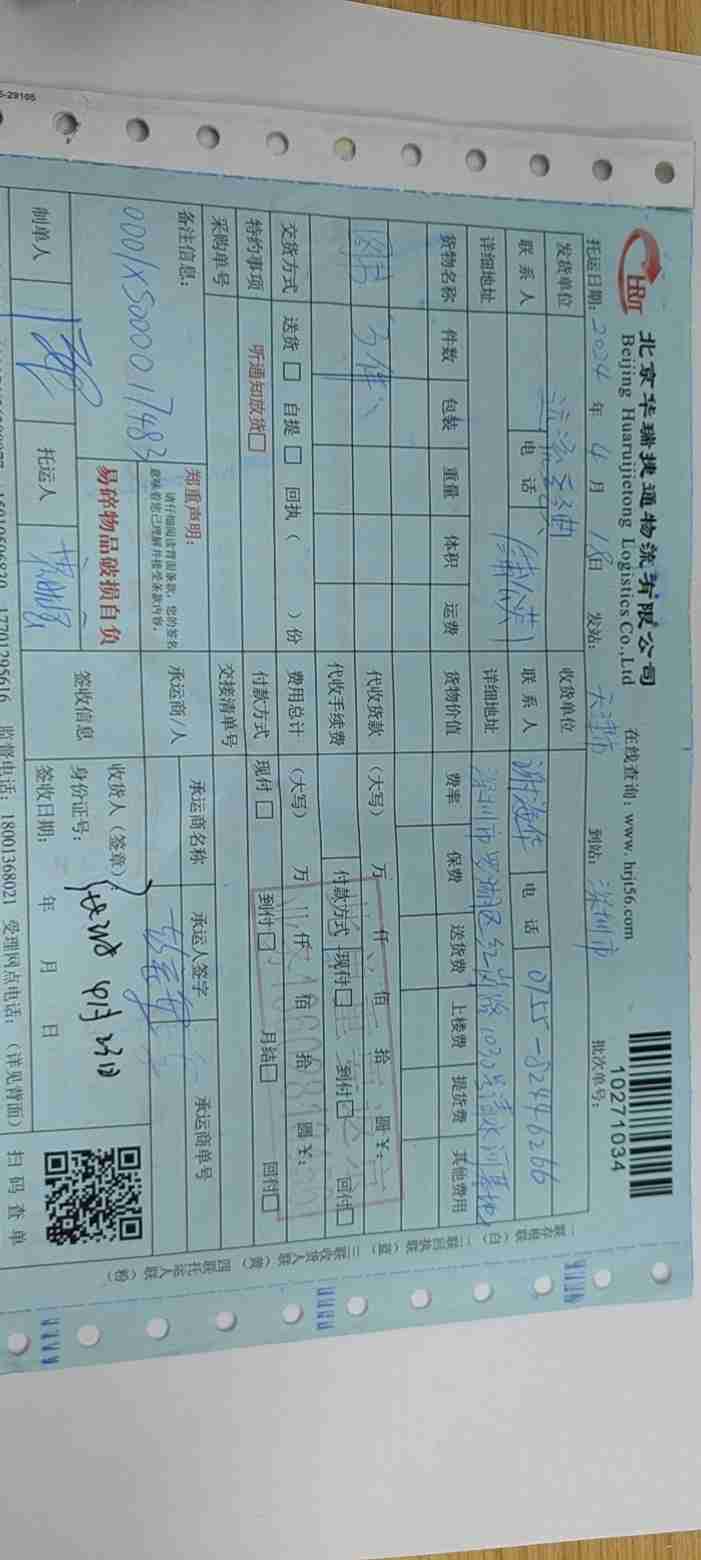 5-29105
HRJT
北京华瑞捷通物流有限公司
Beijing Huaruijietong Logistics Co.,Ltd
在线查询：www.hrjt56.com
10271034
托运日期：2024 年 4 月 18 日 发站：天津市 到站：深圳市 批次单号：
发货单位 收货单位
联系人 电话 联系人 谢海华 电话 0755-82446266
详细地址 详细地址 深圳市罗湖区红岗路1030号清水河基地
货物名称 件数 包装 重量 体积 运费 货物价值 费率 保费 送货费 上楼费 提货费 其他费用
图书 3件
代收货款 （大写） 万 仟 佰 拾 圆￥：
代收手续费 付款方式 现付□ 到付□ 回付□
交货方式 送货 □ 自提 □ 回执（ ）份 费用总计 （大写） 万 仟 佰 拾 圆￥：
特约事项 听通知放货□ 付款方式 现付 □ 到付 □ 月结□ 回付□
采购单号 交接清单号
备注信息： 承运商/人 承运商名称 承运人签字 承运商单号
0001XS000017483
郑重声明：
请仔细阅读背面条款，您的签名
意味着您已理解并接受条款内容。
易碎物品破损自负
签收信息 收货人（签章）：
身份证号：
4月23日
签收日期： 年 月 日
制单人 托运人
17701295616 监督电话：18001368021 受理网点电话：（详见背面）
扫码查单
一联存根联（白） 二联回执联（蓝） 三联收货人联（黄） 四联托运人联（粉）